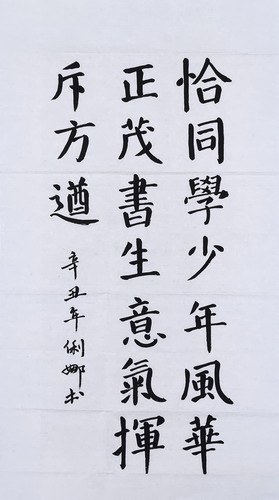 恰同學少年風華
正茂書生意氣揮
斥方遒
辛丑年俐娜书